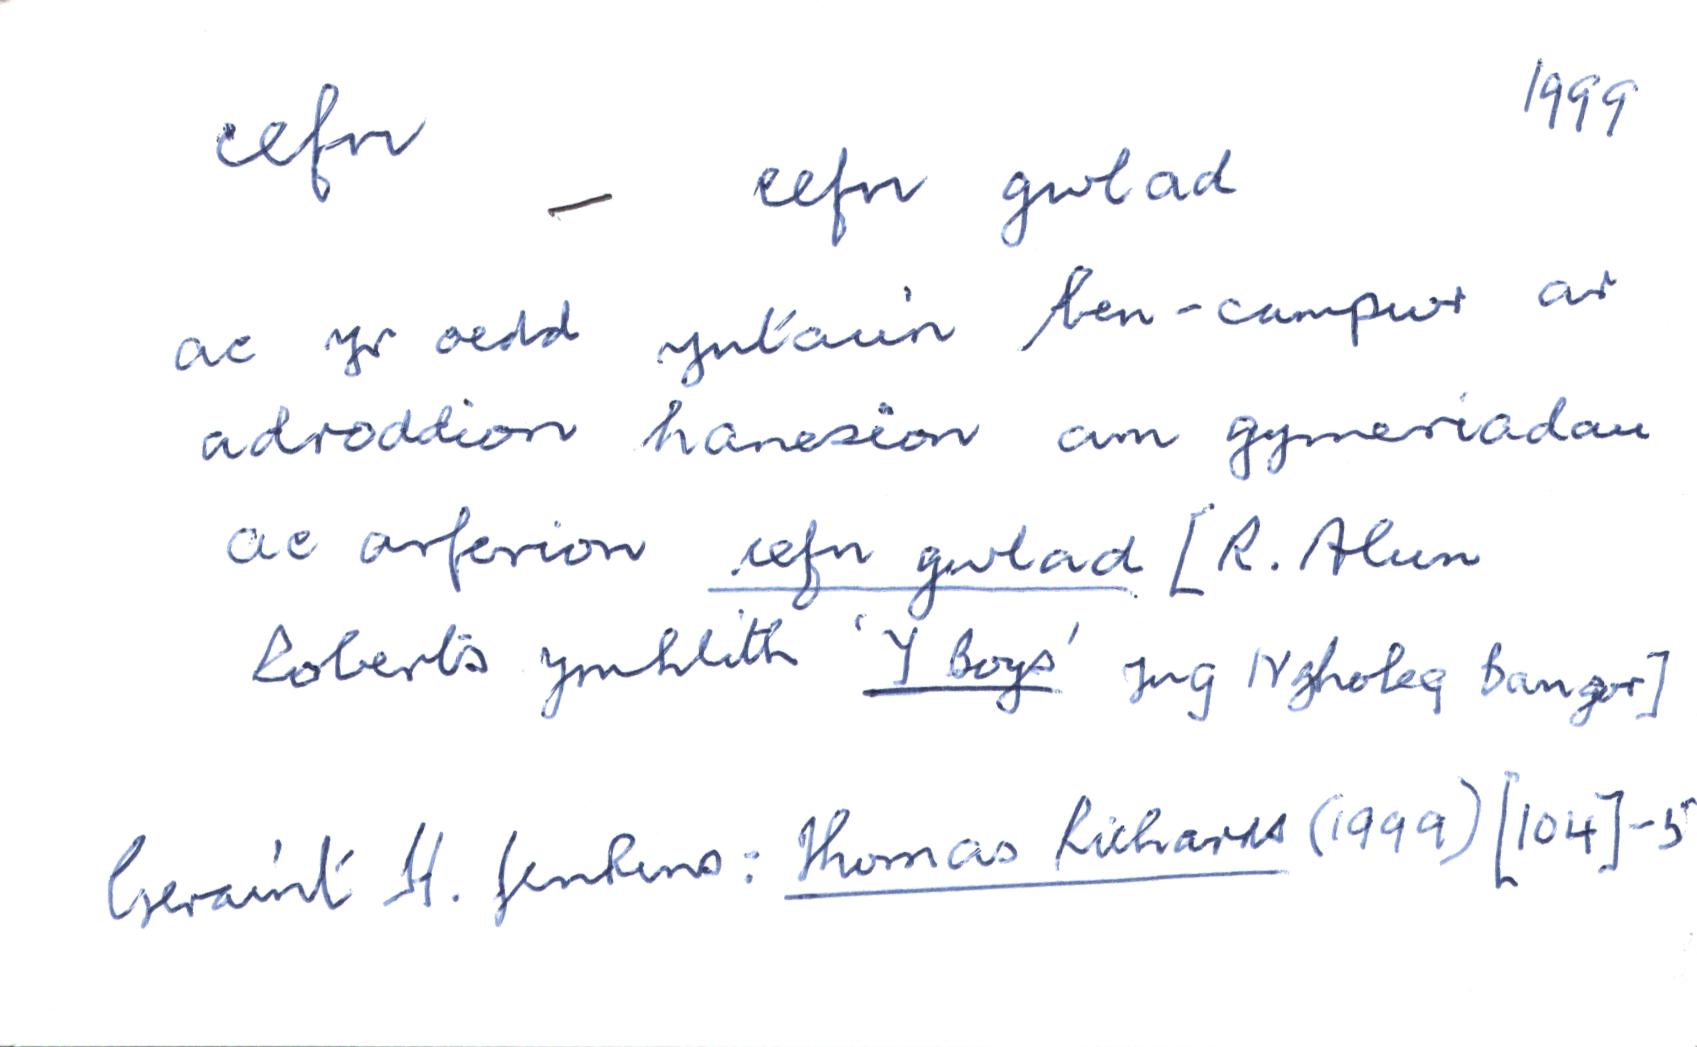 cefn 1999
— cefn gwlad
ac yr oedd yntau'n ben-campwr ar
adroddion hanesion am gymeriadau
ac arferion cefn gwlad [R. Alun
Roberts ymhlith 'Y Boys' yng Ngholeg Bangor]
Geraint H. Jenkins: Thomas Richards (1999) [104]-5